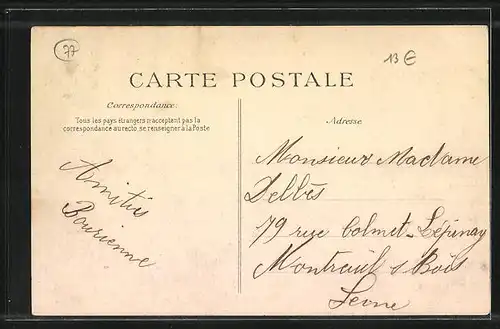 77
13 €
CARTE POSTALE
Correspondance:
Tous les pays étrangers n'acceptent pas la
correspondance au recto, se renseigner à la Poste
Adresse
Amitiés
Bourienne
Monsieur Madame
Dellès
79 rue Colmet-Lépinay
Montreuil s Bois
Seine